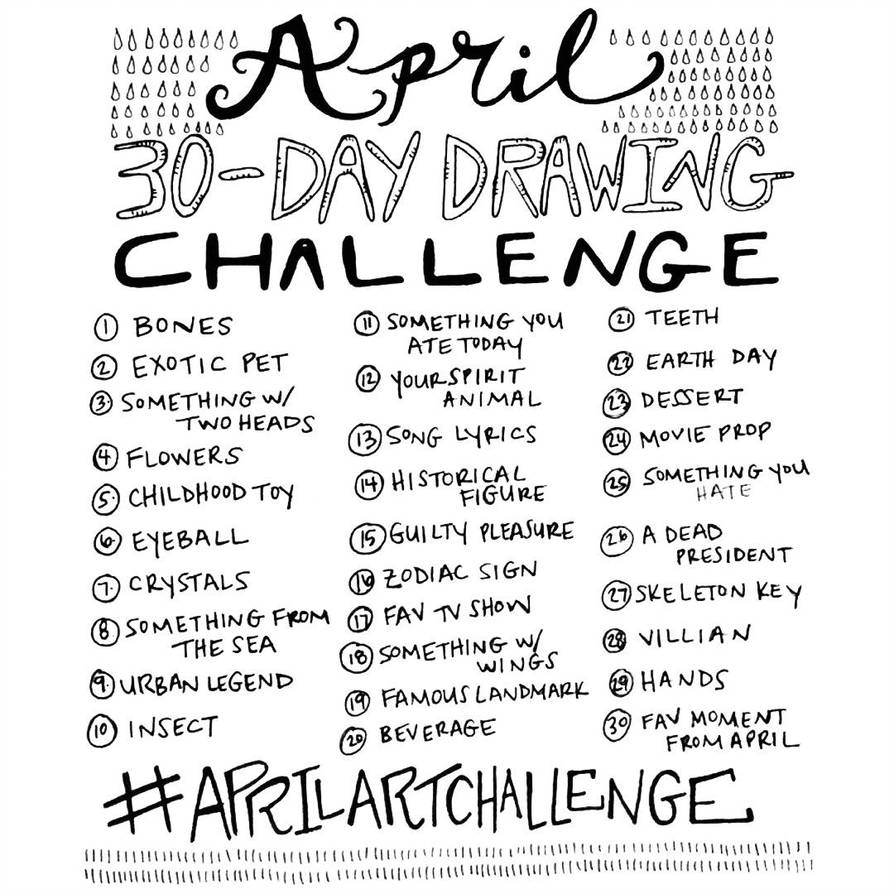 April
30-DAY DRAWING
CHALLENGE
1 BONES
2 EXOTIC PET
3 SOMETHING W/
TWO HEADS
4 FLOWERS
5 CHILDHOOD TOY
6 EYEBALL
7 CRYSTALS
8 SOMETHING FROM
THE SEA
9 URBAN LEGEND
10 INSECT
11 SOMETHING YOU
ATE TODAY
12 YOUR SPIRIT
ANIMAL
13 SONG LYRICS
14 HISTORICAL
FIGURE
15 GUILTY PLEASURE
16 ZODIAC SIGN
17 FAV TV SHOW
18 SOMETHING W/
WINGS
19 FAMOUS LANDMARK
20 BEVERAGE
21 TEETH
22 EARTH DAY
23 DESSERT
24 MOVIE PROP
25 SOMETHING YOU
HATE
26 A DEAD
PRESIDENT
27 SKELETON KEY
28 VILLIAN
29 HANDS
30 FAV MOMENT
FROM APRIL
#APRILARTCHALLENGE